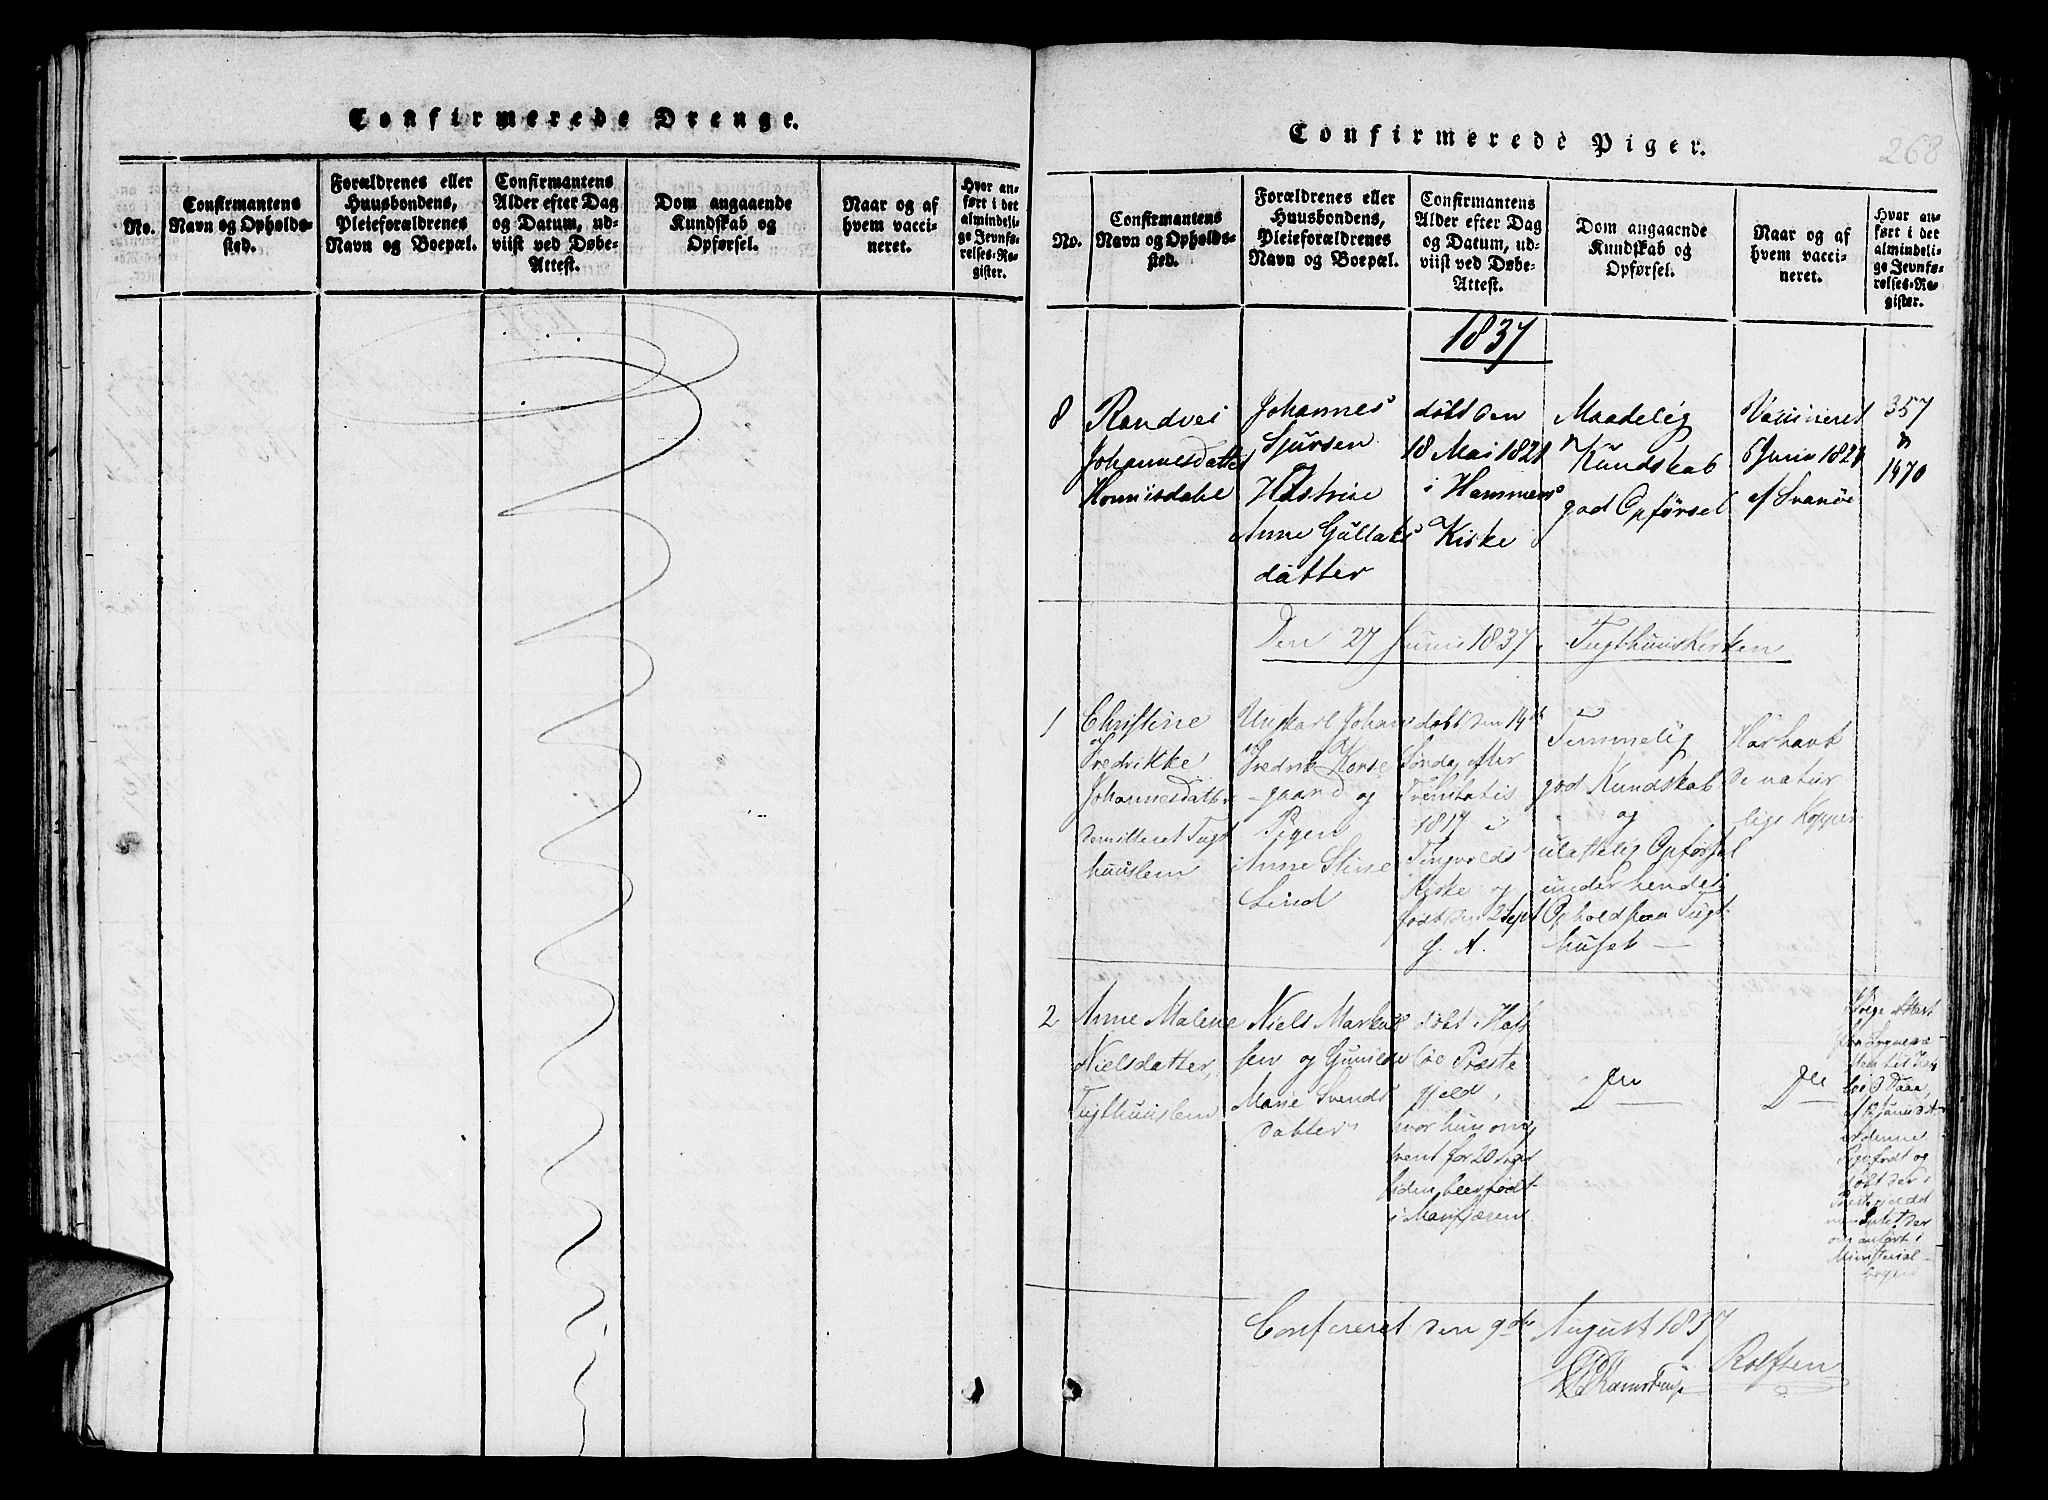 Confirmerede Drenge.
No.
Confirmantens
Navn og Opholds-
sted.
Forældrenes eller
Huusbondens,
Pleieforældrenes
Navn og Boepæl.
Confirmantens
Alder efter Dag
og Datum, ud-
viist ved Døbe-
Attest.
Dom angaaende
Kundskab og
Opførsel.
Naar og af
hvem vacci-
neret.
Hvor an-
ført i det
almindeli-
ge Jevnfø-
relses-Re-
gister.
Confirmerede Piger.
268
No.
Confirmantens
Navn og Opholds-
sted.
Forældrenes eller
Huusbondens,
Pleieforældrenes
Navn og Boepæl.
Confirmantens
Alder efter Dag
og Datum, ud-
viist ved Døbe-
Attest.
Dom angaaende
Kundskab og
Opførsel.
Naar og af
hvem vacci-
neret.
Hvor an-
ført i det
almindeli-
ge Jevnfø-
relses-Re-
gister.
1837
8
Randvei
Johannesdatter
Johannes
Sjursen
Anne Gullaks
datter
døbt den
18 Mai 1821
i Hammers
Kirke
Maadelig
Kundskab
god Opførsel
Vaccineret
6 Juni 1821
af Svanøe
357
1470
Den 27 Junii 1837. Tugthuuskirken
1
Christine
Fredrikke
Johannesdatter
demitteret Tugt
huuslem
Ungkarl Johan
Fredrik Korse
gaard og
Pigen
Anne Stine
Lind
døbt den 14de
Søndag efter
Trinitatis
1817 i
Tingvolds
Kirke og
født den 2 Sept
s. A.
Temmelig
god Kundskab
og
ulastelig Opførsel
under hendes
Ophold paa Tugt
huset
Har havt
de natur
lige Kopper
2
Anne Malene
Nielsdatter,
Tugthuuslem
Niels Markus
sen og Gunilde
Marie Svends
datter
døbt i Haf
loe Præste
gjeld,
hvor hun om
trent for 20 Aar
siden blev født
i Marifjæren
do
do
Ifølge Attest
fra Sognepræ
sten til Haf
loe
er denne
Pige født og
døbt der i
Præstegjeldet
men Intet der
om anført i
Ministerial-
bogen
Confereret den 9de August 1837
Ramstrup
Rolfsen